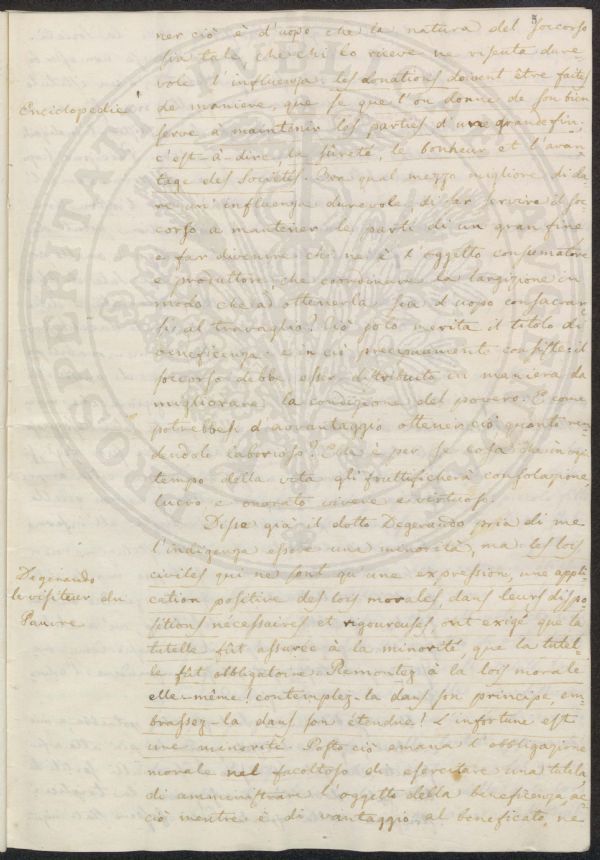 3
ner ciò è d'uopo che la natura del soccorso
sia tale, che chi lo riceve ne risenta dure-
vole l'influenza. Les donations doivent être faites
Enciclopedie
de maniere, que se que l'on donne de son bien
serve a maintenir les parties d'une grande fin,
c'est-à-dire, la sûreté, le bonheur et l'avan-
tage des Societés. Or qual mezzo migliore di da-
re un' influenza durevole, di far servire il soc-
corso a mantener le parti di un gran fine
e far divenire chi ne è l'oggetto consumatore
e produttore, che coordinare la largizione in
modo che ad ottenerla sia d'uopo consacrar-
si al travaglio? Ciò solo merita il titolo di
beneficenza: e in ciò precisamente consiste: il
soccorso debbe esser distribuito in maniera da
migliorare la condizione del povero. E come
potrebbesi d'avvantaggio ottener ciò quanto ren-
dendolo laborioso? Esta è per se cosa che in ogni
tempo della vita gli fruttificherà consolazione,
lucro e onorato vivere e virtuoso.
Disse già il dotto Degerando pria di me
l'indigenza essere una minorità, ma les lois
Degerando
le visiteur du
Pauvre
civiles qui ne sont qu'une expression, une appli-
cation positive des lois morales, dans leurs dispo-
sitions necessaires et rigoureuses, ont exigé que la
tutelle fût assurée à la minorité que la tutel-
le fût obbligatoire. Remontez à la lois morale
elle-même! contemplez-la dans son principe, em-
brassez-la dans son étendue! L'infortune est
une minorité. Posto ciò emana l'obbligazione
morale nel facoltoso di esercitare una tutela,
di amministrare l'oggetto della beneficenza, ac-
ciò mentre è di vantaggio al beneficato, ne
PROSPERITAT PUBLIC